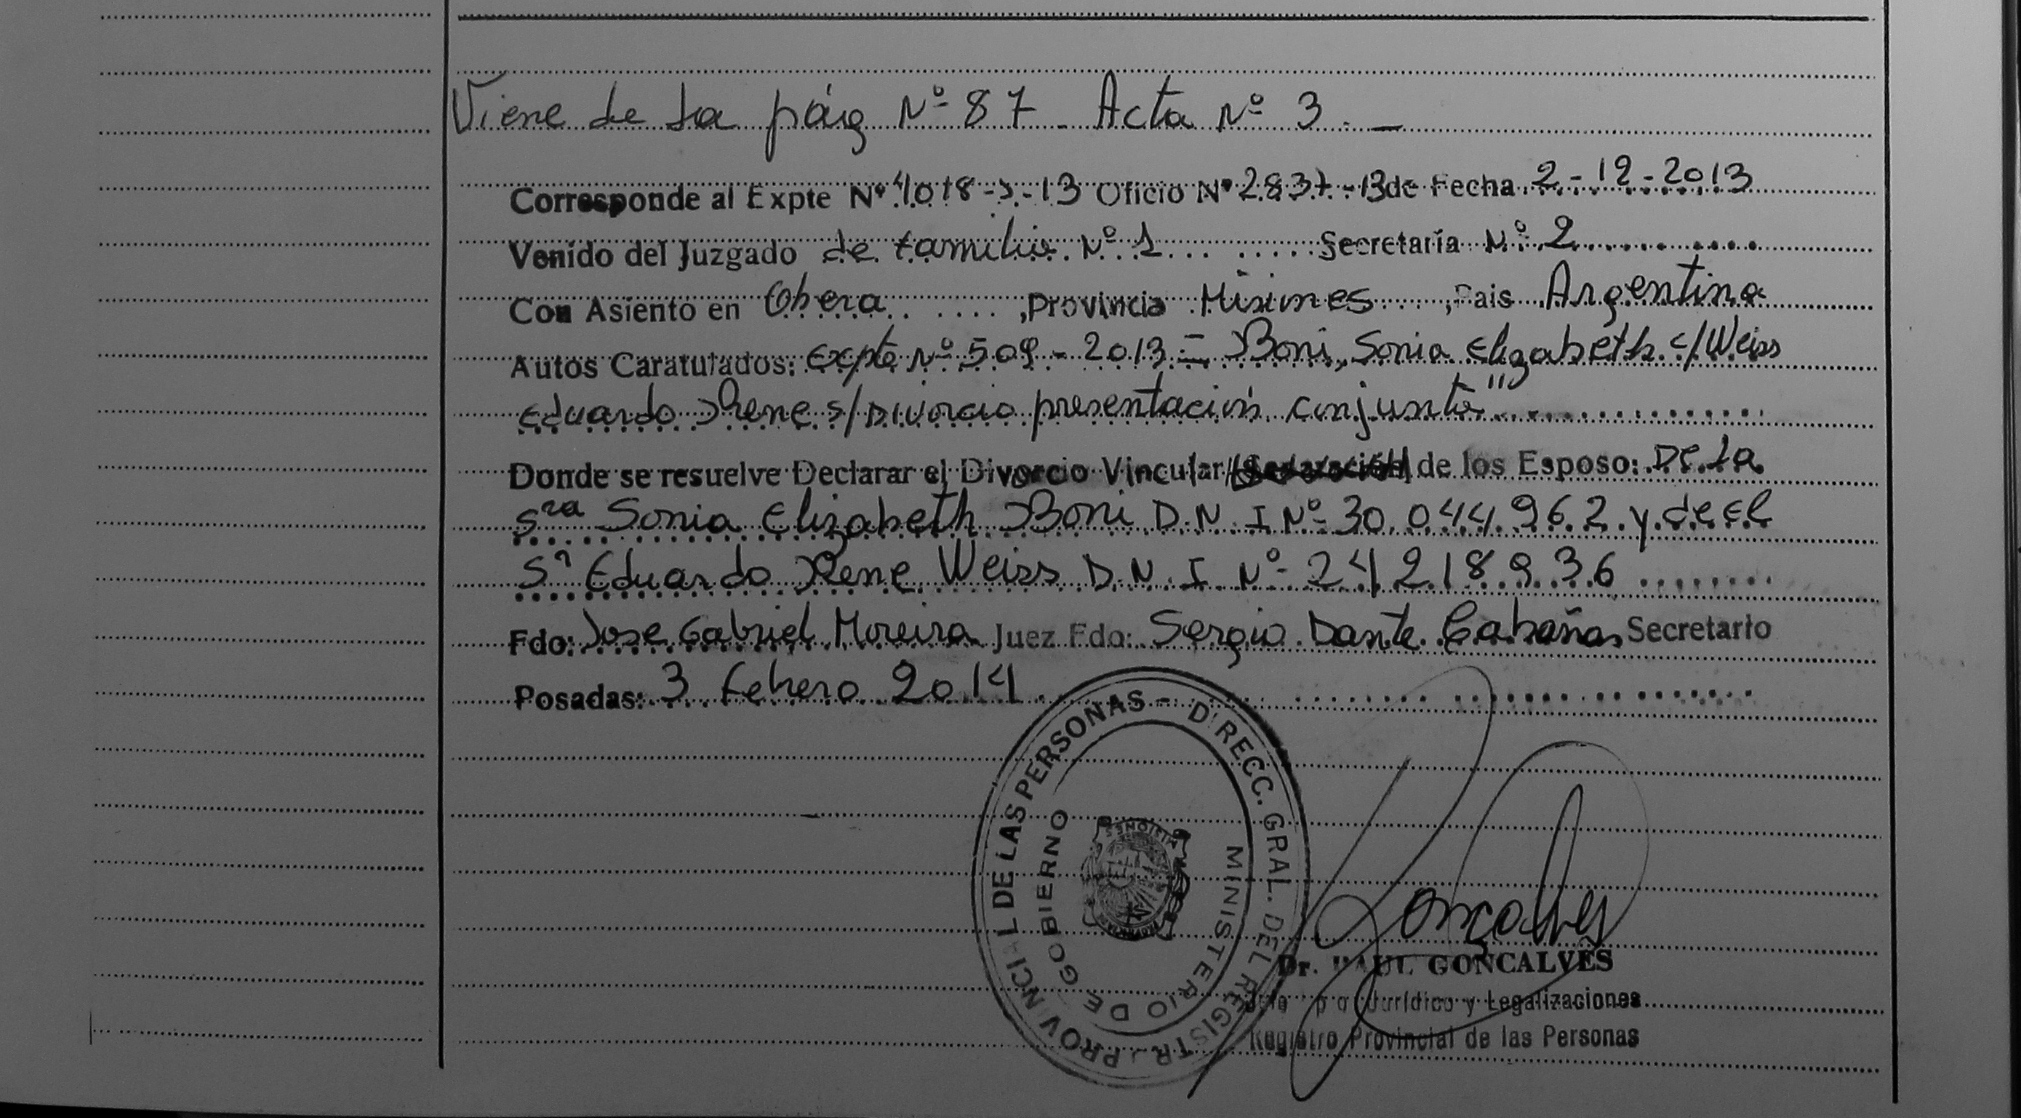 Viene de la pág Nº 87 - Acta Nº 3 . -
Corresponde al Expte Nº 4018-J-13 Oficio Nº 2837-13 de Fecha 2-12-2013
Venido del Juzgado de familia Nº 1 Secretaría Nº 2
Con Asiento en Obera ,Provincia Misiones ,Pais Argentina
Autos Caratulados: Expte Nº 509-2013 = Boni, Sonia Elizabeth c/ Weiss
Eduardo Rene s/ Divorcio presentación conjunta"
Donde se resuelve Declarar el Divorcio Vincular de los Esposo: De la
Sra Sonia Elizabeth Boni D.N.I Nº 30.044.962 y de el
Sr Eduardo Rene Weiss D.N.I Nº 24.218.936
Fdo: Jose Gabriel Moreira Juez Fdo: Sergio Dante Cabañas Secretario
Posadas: 3 febrero 2014
DIRECC. GRAL. DEL REGISTR. PROVINCIAL DE LAS PERSONAS -
MINISTERIO DE GOBIERNO
PROVINCIA DE MISIONES
Goncalves
Dr. RAUL GONCALVES
Jurídico y Legalizaciones
Registro Provincial de las Personas